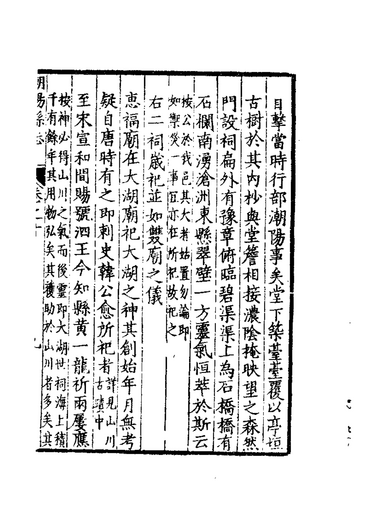 目擊當時行部潮陽事矣堂下築臺臺覆以亭垣
古樹於其内抄與堂簷相接濃陰掩映望之森然
門設祠扁外有豫章俯臨碧渠渠上為石橋橋有
石欄南湧滄洲東縣翠壁一方靈氣恒萃於斯云
按公於我邑其大者姑置勿論即
如禦災一事固亦在所祀故祀之
右二祠歲祀並如雙廟之儀
惠福廟在大湖廟祀大湖之神其創始年月無考
疑自唐時有之即刺史韓公愈所祀者詳見山川
古蹟中
至宋宣和間賜號泗王今知縣黄一龍祈雨屢應
按神必得山川之氣而後靈即大湖世祠海上積
千有餘年其用物弘矣其獲助於山川者多矣其
潮陽縣志
卷之十
九